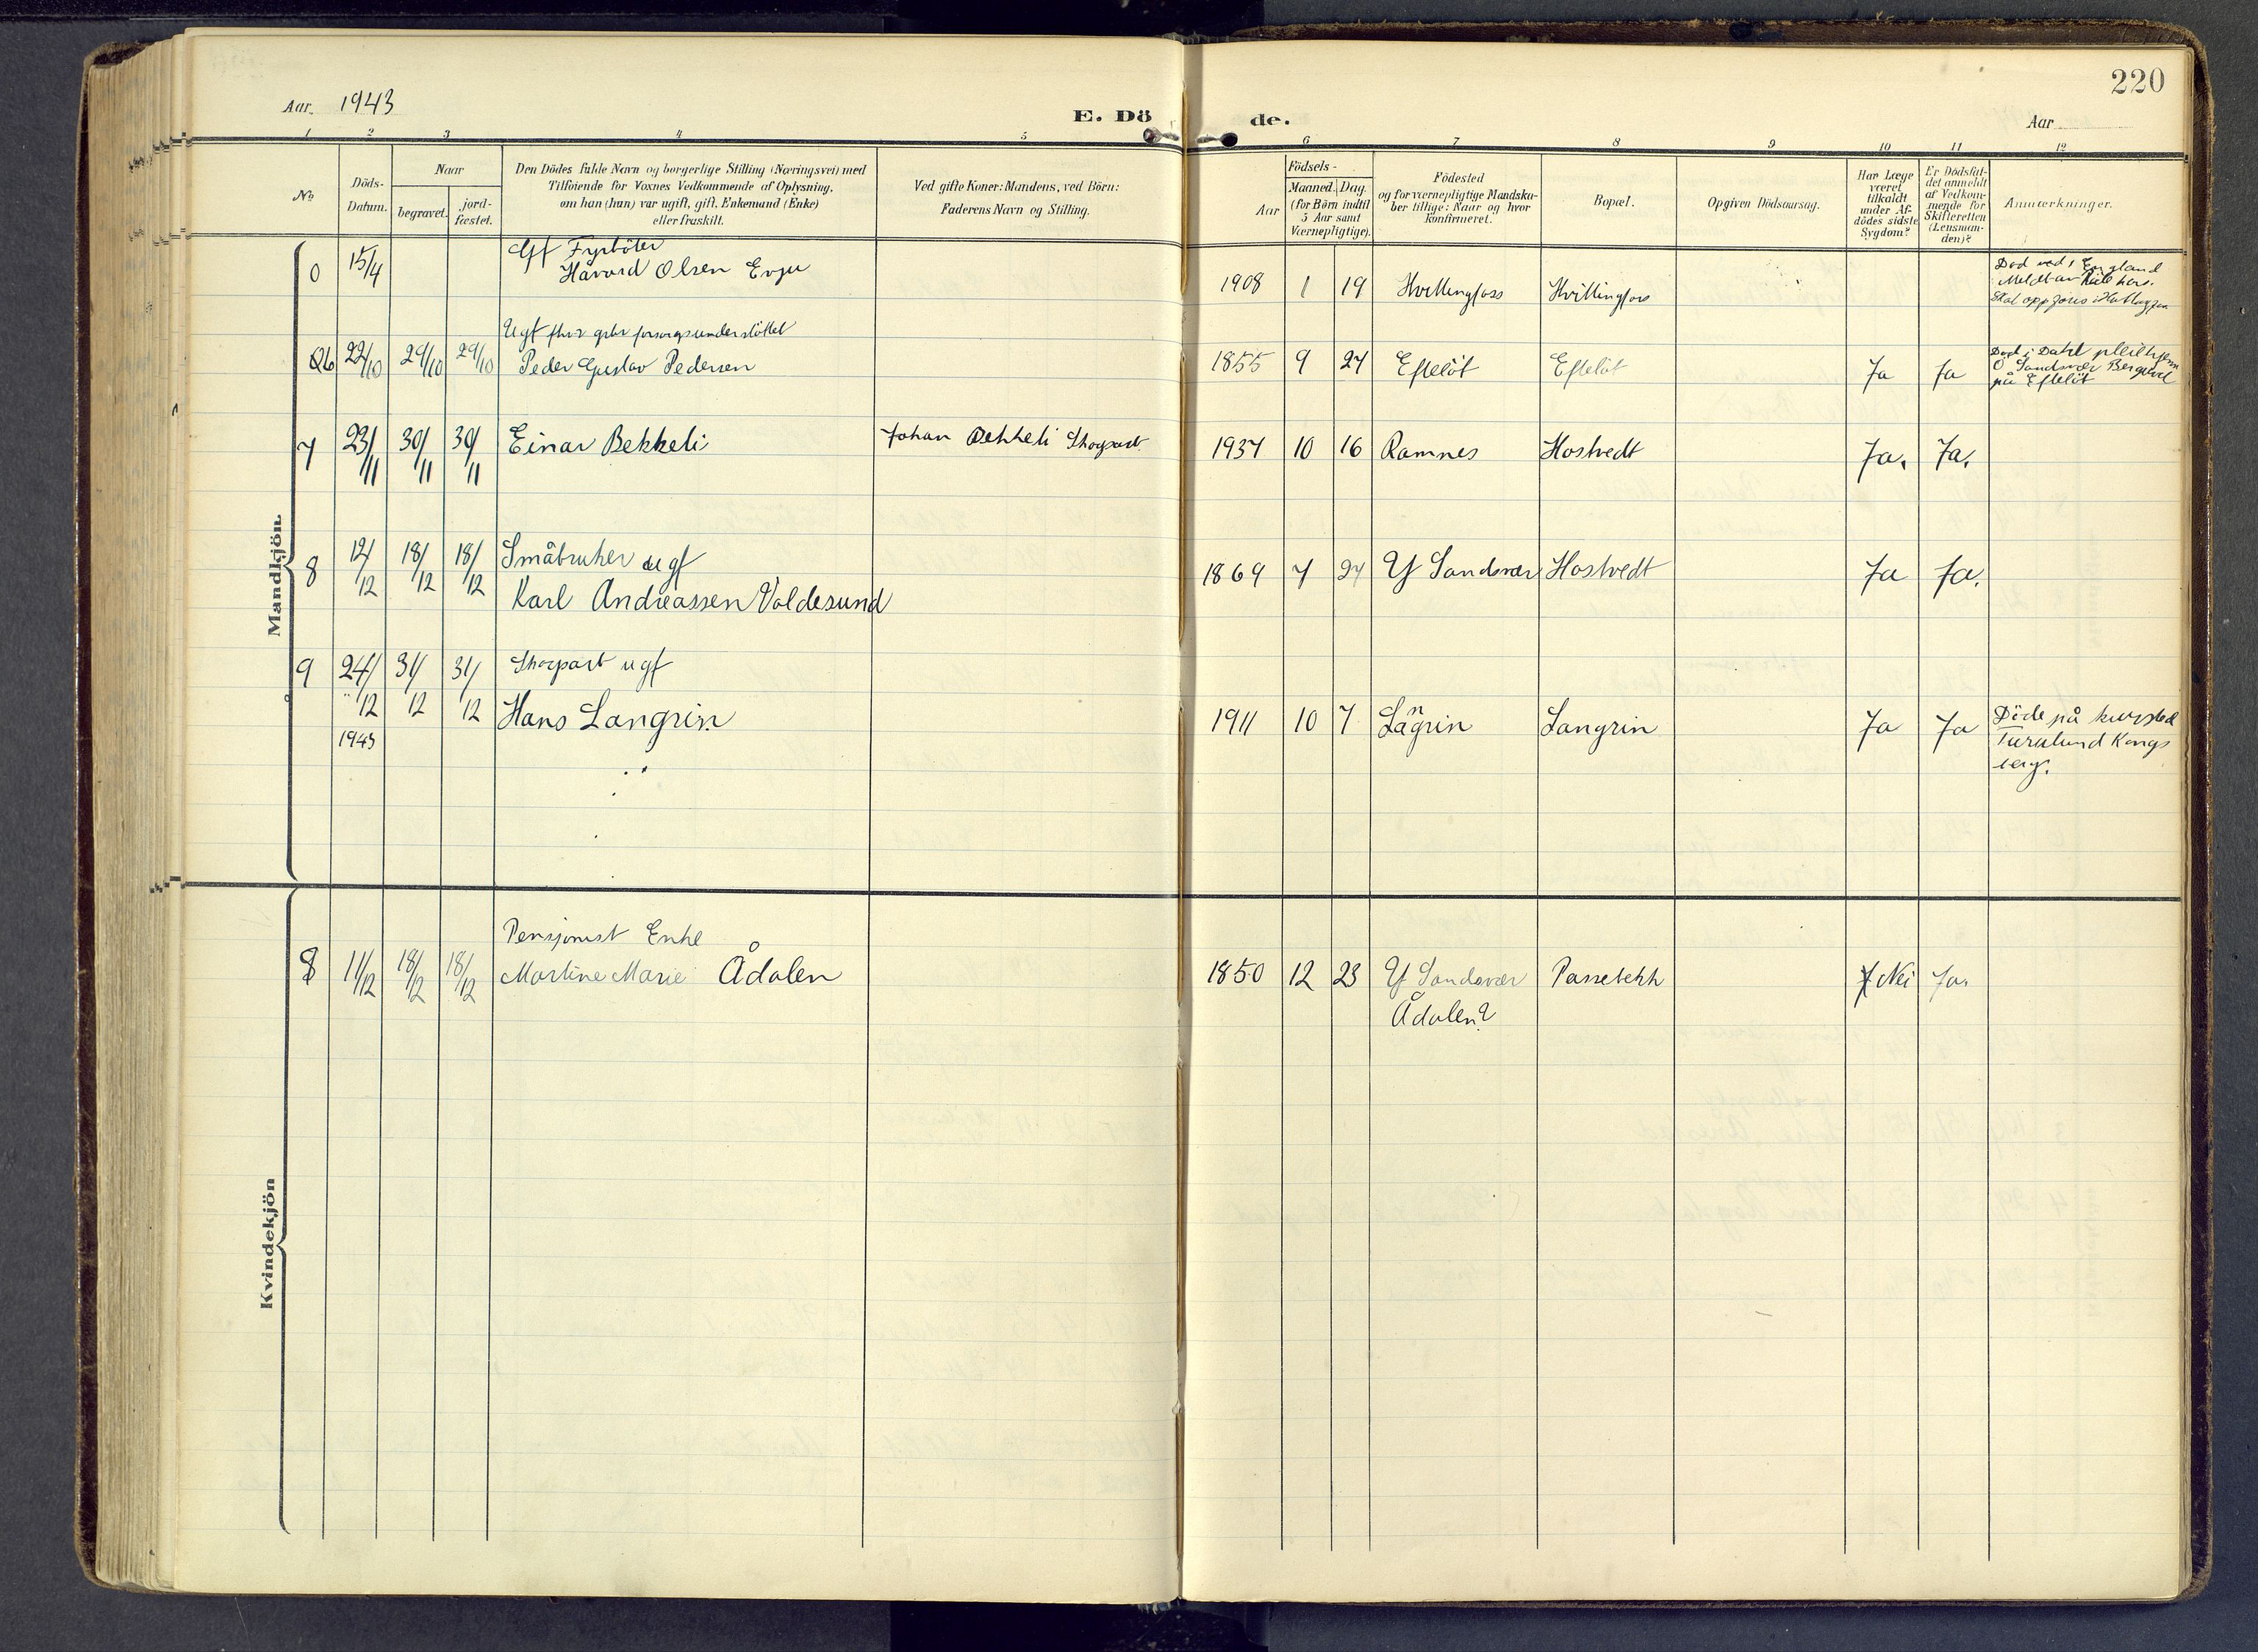 220
Aar. 1943
E. Dö
de.
Aar
1 2 3 4 5 6 7 8 9 10 11 12
No
Döds-
Datum.
Naar
begravet.
jord-
fæstet.
Den Dödes fulde Navn og borgerlige Stilling (Næringsvei) med
Tilföiende for Voxnes Vedkommende af Oplysning,
om han (hun) var ugift, gift, Enkemand (Enke)
eller fraskilt.
Ved gifte Koner: Mandens, ved Börn:
Faderens Navn og Stilling.
Födsels-
Aar
Maaned. Dag.
(for Börn indtil
5 Aar samt
Værnepligtige).
Födested
og for værnepligtige Mandska-
ber tillige: Naar og hvor
konfirmeret.
Bopæl.
Opgiven Dödsaarsag.
Har Læge
været
tilkaldt
under Af-
dödes sidste
Sygdom?
Er Dödsfal-
det anmeldt
af Vedkom-
mende for
Skifteretten
(Lensman-
den)?
Anmærkninger.
Mandkjön.
Gf Fyrböter
0 15/4 Håvard Olsen Evju 1908 1 19 Hvittingfoss Hvittingfoss
Död ved England
Meldt av
Skal oppgjøres
Ugf forsorgsunderstöttet
6 22/10 29/10 29/10 Peder Gustav Pedersen 1855 9 27 Eftelöt Eftelöt Ja Ja
Död i pleiehjem
Ö Sandsvær
på Eftelöt
7 23/11 30/11 30/11 Einar Bekkeli Johan Bekkeli Skogsarb 1937 10 16 Ramnes Hostvedt Ja. Ja.
8 12/12 18/12 18/12 Småbruker ugf
Karl Andreassen Valdesund 1869 7 27 Y Sandsvær Hostvedt Ja Ja.
9 24/12 31/12 31/12 Skogsarb ugf
1943 Hans Langrin. 1911 10 7 Langrin Langrin Ja Ja
Döde på kursted
Furulund Kongs
berg.
Kvindekjön
Pensjonist Enke
8 11/12 18/12 18/12 Martine Marie Ådalen 1850 12 23 Y Sandsvær Passebekk Nei Ja.
Ådalen?